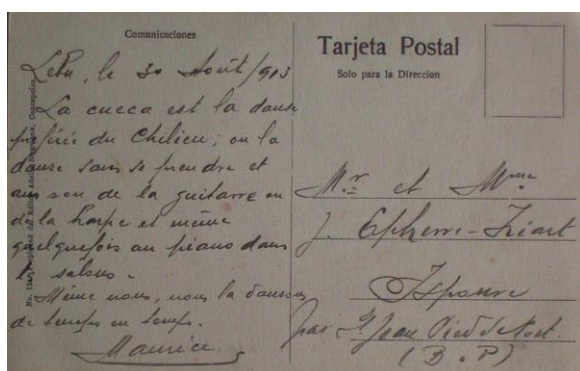 Comunicaciones
Lebu, le 30 Août/913
La cueca est la danse
préférée du Chilien; on la
danse sans se prendre et
au son de la guitarre ou
de la harpe et même
quelquefois au piano dans
salons.
Même nous, nous la dansons
de temps en temps.
Maurice
Tarjeta Postal
Solo para la Direccion
Mr. et Mme
J. Epherre-Iriart
Ispoure
par St Jean Pied de Port
(B.P)